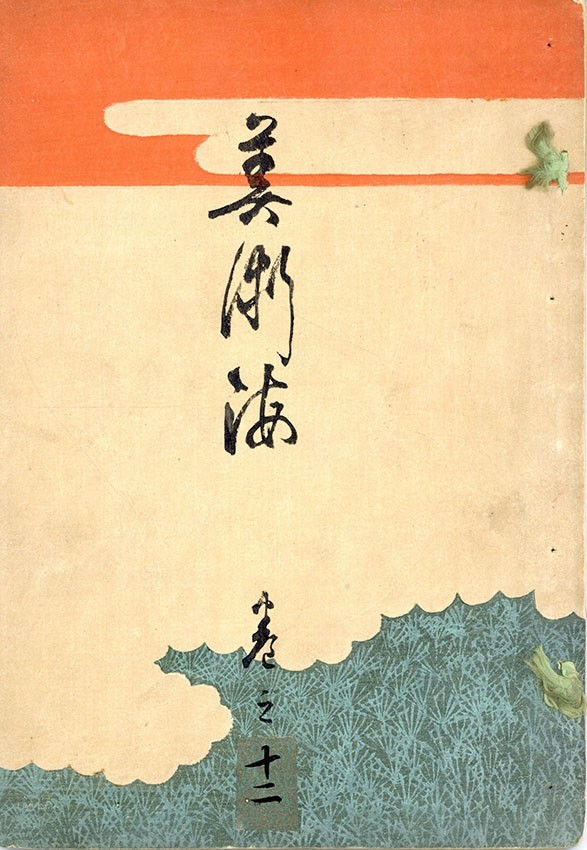 美術海
巻之
十二